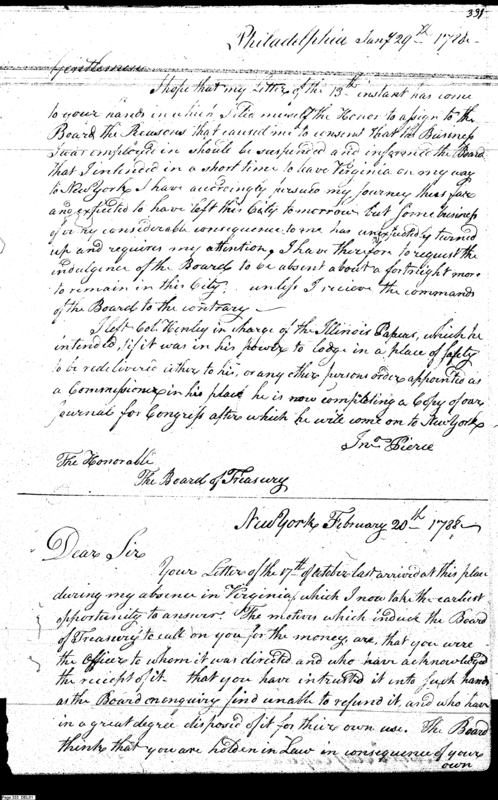 331
Philadelphia Jany 29th 1788
Gentlemen
I hope that my Letter of the 13th instant has come
to your hands in which I did myself the Honor to assign to the
Board the Reasons that caused me to consent that the Business
I was employed in should be suspended and inference the Board
that I intended in a short time to leave Virginia on my way
to New York I have accordingly persued my Journey thus far
and expected to have left this City to morrow but some business
of very considerable consequence to me has unexpectedly turned
up and requires my attention, I have therefore to request the
indulgence of the Board to be absent about a fortnight more
to remain in this City unless I recieve the commands
of the Board to the contrary
I left Col. Henley in charge of the Illinois Papers, which he
intended, if it was in his power to lodge in a place of safety
to be redelivered either to his, or any other persons order appointed as
a Commissioner in his place he is now compleating a Copy of our
Journal for Congress after which he will come on to New York
Jno Pierce
The Honorable
The Board of Treasury
New York February 20th 1788
Dear Sir
Your Letter of the 17th of October last arrived at this place
during my absence in Virginia, which I now take the earliest
opportunity to answer. The motives which induce the Board
of Treasury to call on you for the money, are, that you were
the Officer to whom it was directed and who have acknowledged
the reciept of it that you have intrusted it into such hands
as the Board on enquiry find unable to refund it, and who have
in a great degree disposed of it for their own use. The Board
think that you are holden in Law in consequence of your
own